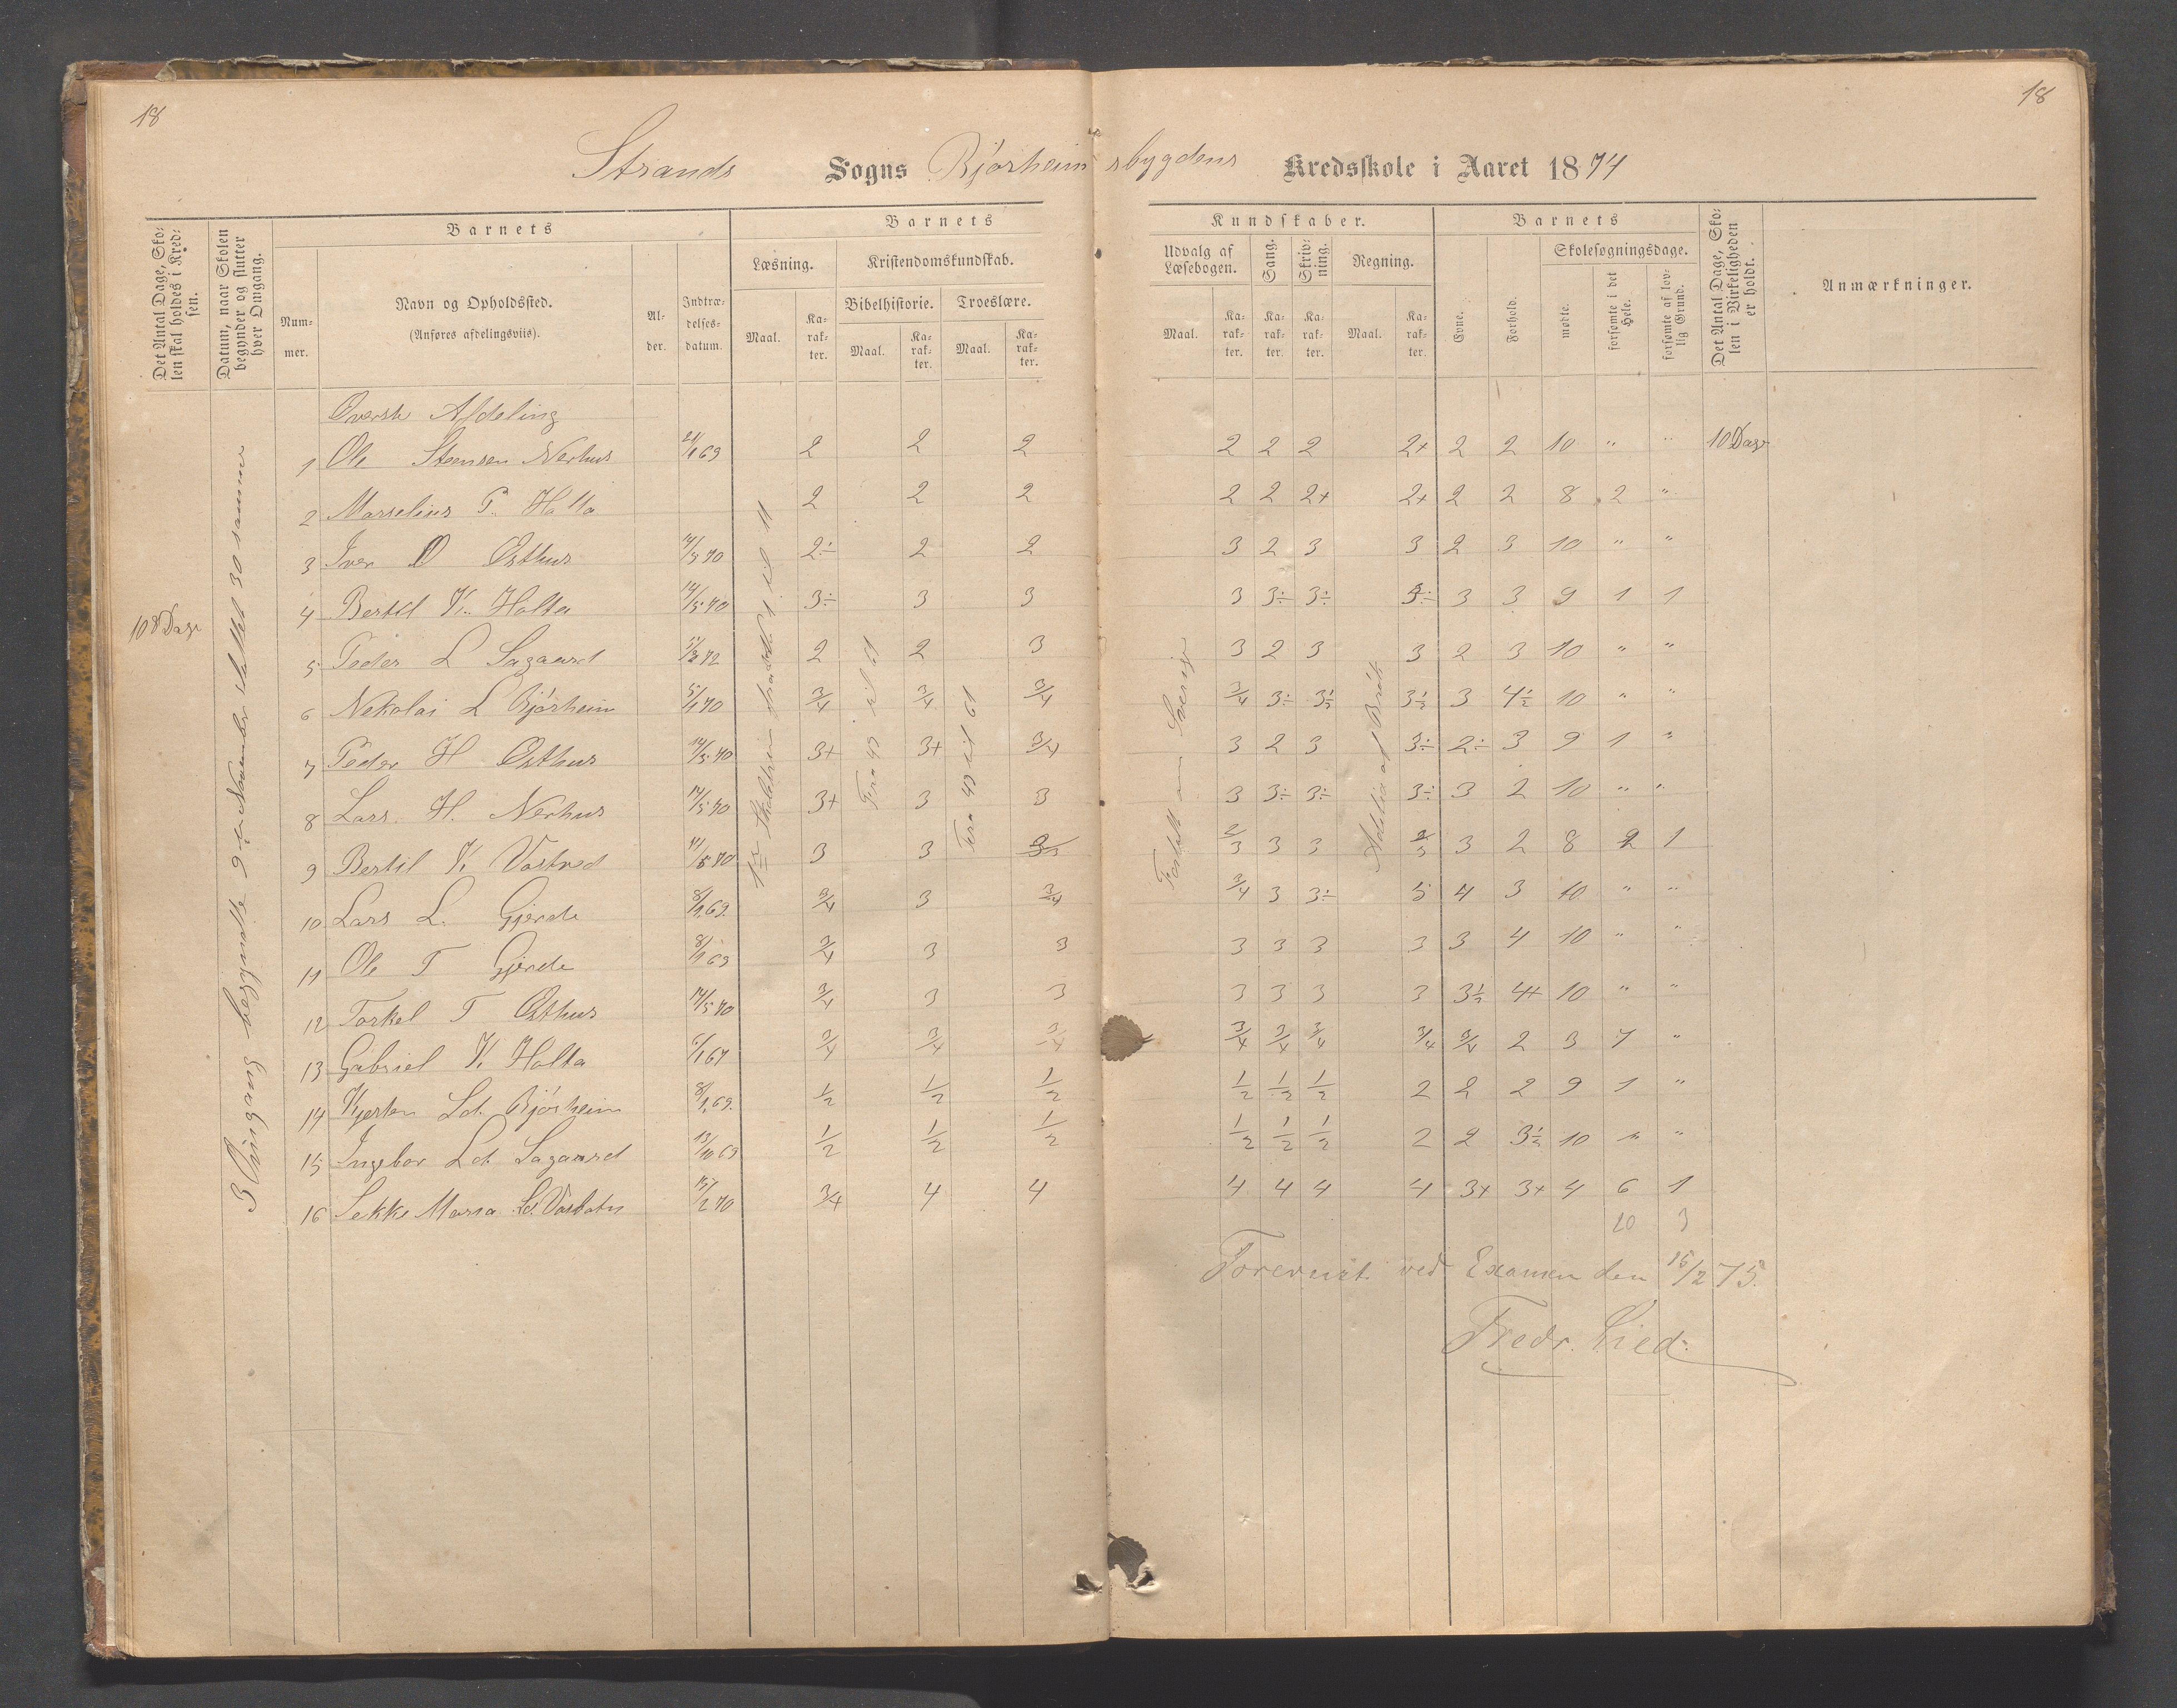 18
18
Strands Sogns Bjørheimsbygdens Kredsskole i Aaret 1874
Det Antal Dage, Skolen skal holdes i Kredsen.
Datum, naar Skolen begynder og slutter hver Omgang.
Barnets
Nummer.
Navn og Opholdssted.
(Anføres afdelingsviis).
Alder.
Indtrædelsesdatum.
Barnets
Læsning.
Maal.
Karakter.
Kristendomskundskab.
Bibelhistorie.
Maal.
Karakter.
Troeslære.
Maal.
Karakter.
Kundskaber.
Udvalg af Læsebogen.
Maal.
Karakter.
Sang.
Karakter.
Skrivning.
Karakter.
Regning.
Maal.
Karakter.
Barnets
Evne.
Forhold.
Skolesøgningsdage.
mødte.
forsømte i det Hele.
forsømte af lovlig Grund.
Det Antal Dage, Skolen i Virkeligheden er holdt.
Anmærkninger.
108 Dage
3 Omgang begyndte 9de November sluttet 30 samme
1ste Skilderi fra
Fra 49 til 61
Fra 49 til 61
Sverige
Addition af Brøk
Øverste Afdeling
1 Ole Steensen Nerhus 21/1 69 2 2 2 2 2 2 2+ 2 2 10 " " 10 Dage
2 Marselius P. Holta 2 2 2 2 2 2+ 2+ 2 2 8 2 "
3 Iver O Østhus 14/5 70 2÷ 2 2 3 2 3 3 2 3 10 " "
4 Bertil K. Holta 14/5 70 3÷ 3 3 3 3÷ 3÷ 3÷ 3 3 9 1 1
5 Peder L Lagaard 72 2 2 3 3 2 3 3 2 3 10 " "
6 Nekolai L Bjørheim 5/1 70 3/4 3/4 3/4 3/4 3÷ 3½ 3½ 3 4½ 10 " "
7 Peder H Østhus 14/5 70 3+ 3+ 3/4 3 2 3 3÷ 2÷ 3 9 1 "
8 Lars H. Nerhus 14/5 70 3+ 3 3 3 3÷ 3÷ 3÷ 3 2 10 " "
9 Bertil K Vostved 70 3 3 2/3 3 3 2/3 3 2 8 2 1
10 Lars L. Gjerde 8/1 69 3/4 3 3/4 3/4 3 3÷ 5 4 3 10 " "
11 Ole T Gjerde 8/1 69 3/4 3 3 3 3 3 3 3 4 10 " "
12 Torkel T Østhus 14/5 70 3/4 3 3 3 3 3 3 3½ 4+ 10 " "
13 Gabriel K. Holta 6/1 67 3/4 3/4 3/4 3/4 3/4 3/4 3/4 3/4 2 3 7 "
14 Kjersten Ld. Bjørheim 8/1 69 1/2 1/2 1/2 1/2 1/2 1/2 2 2 2 9 1 "
15 Ingebor Ld. Lagaard 13/10 69 1/2 1/2 1/2 1/2 1/2 1/2 2 2 3½ 10 " "
16 Maria Ld. 15/2 70 3/4 4 4 4 4 4 4 3+ 3+ 4 6 1
20 3
Forevist ved Examen den 16/2 75.
Fredr. Lied.